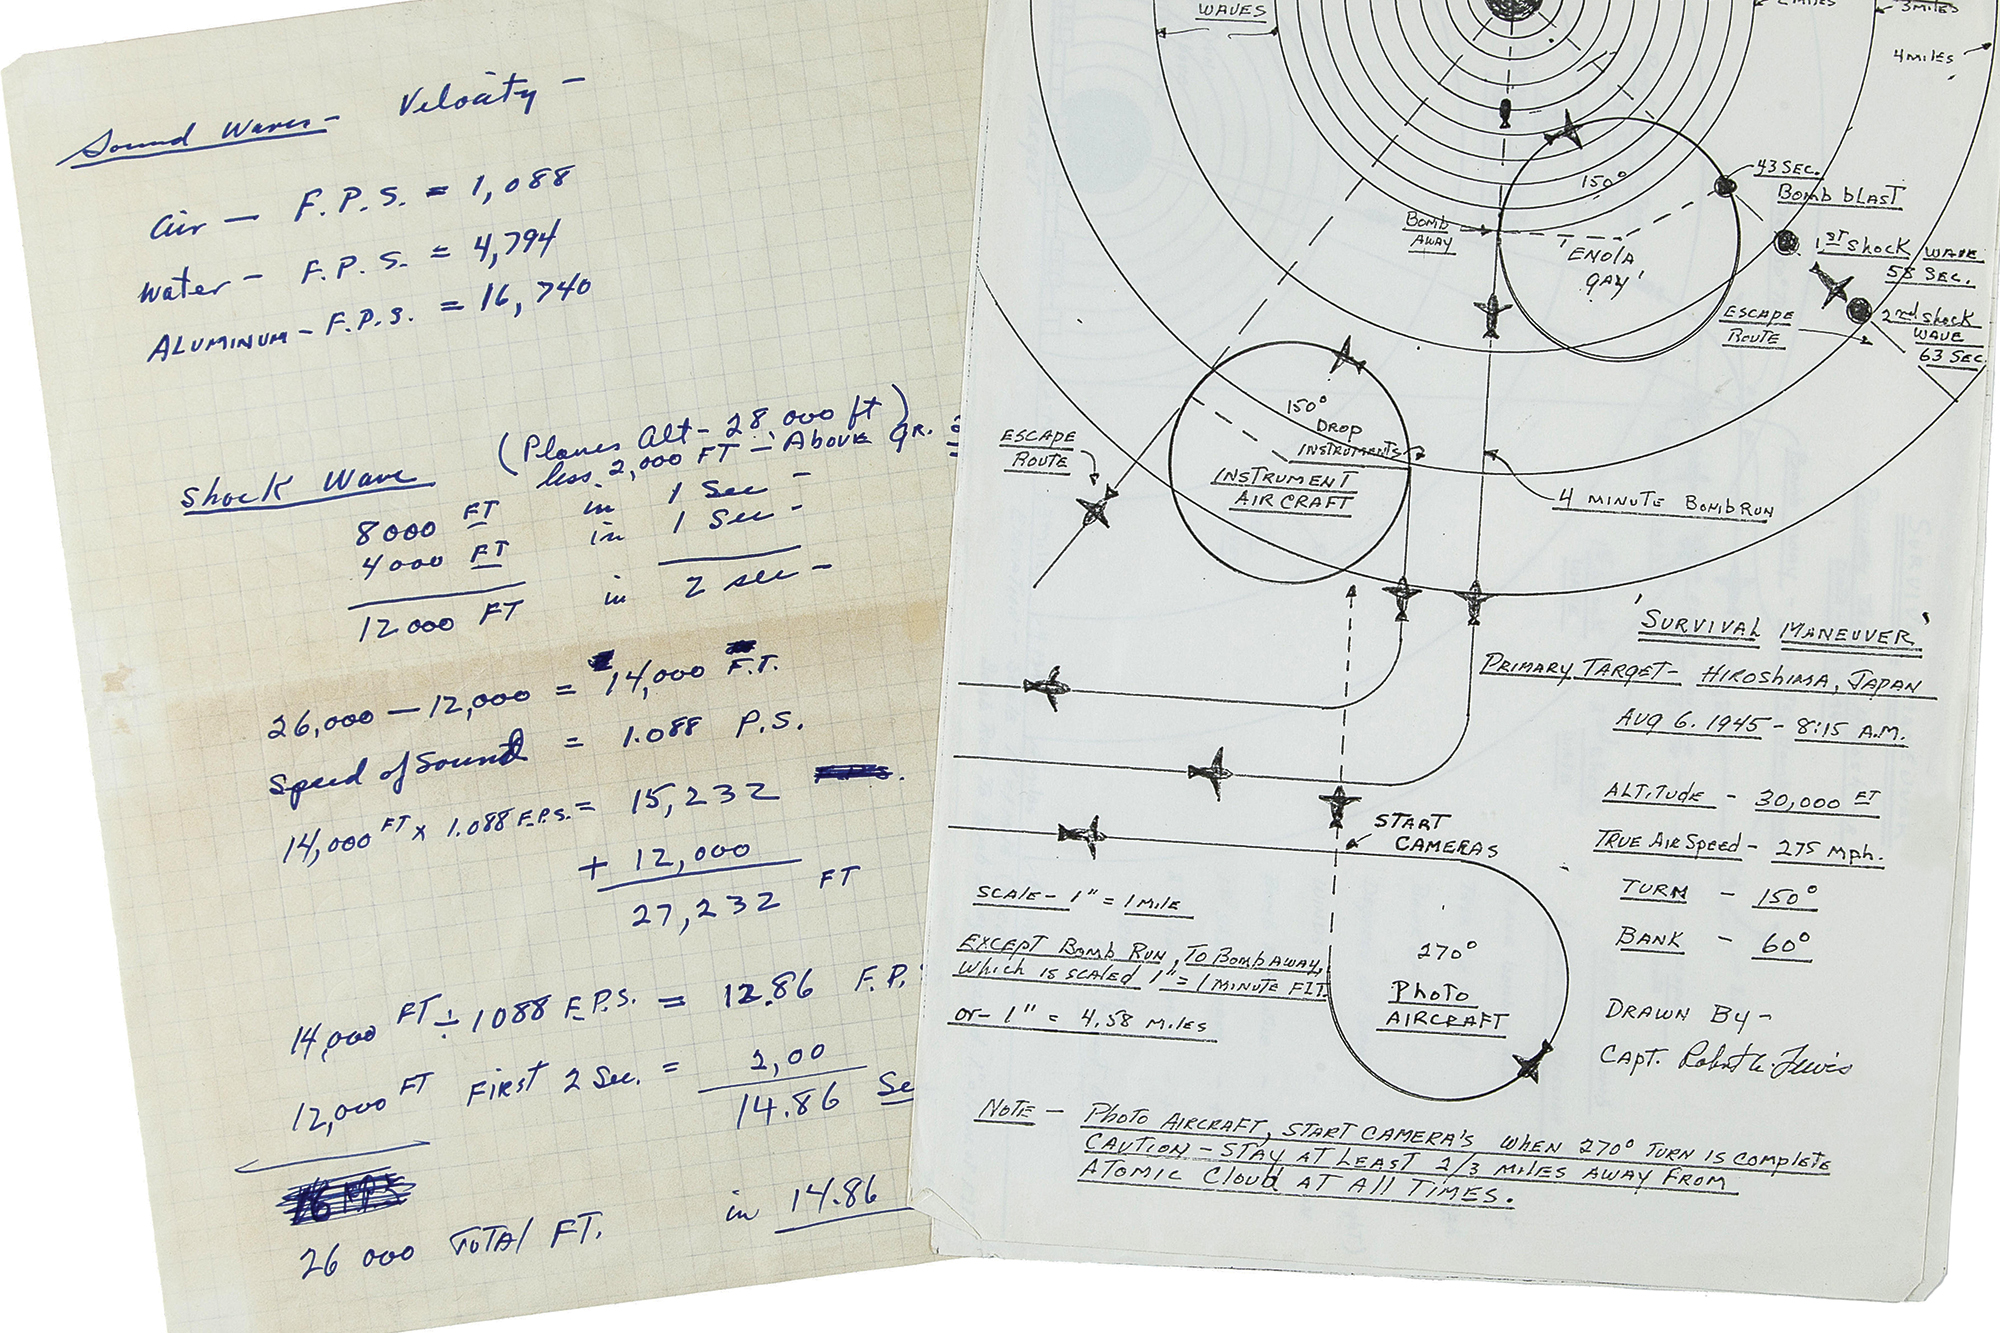 Sound Waves - Velocity -
Air - F.P.S. = 1,088
Water - F.P.S. = 4,794
ALUMINUM - F.P.S. = 16,740
(Planes Alt - 28,000 ft)
less 2,000 FT - Above GR.
Shock Wave
8000 FT in 1 Sec -
4000 FT in 1 Sec -
12000 FT in 2 sec -
26,000 - 12,000 = 14,000 F.T.
Speed of Sound = 1.088 P.S.
14,000 FT x 1.088 F.P.S. = 15,232
+ 12,000
27,232 FT
14,000 FT ÷ 1088 F.P.S. = 12.86 F.P.
12,000 FT First 2 Sec. = 2,00
14.86 Se
26 000 TOTAl FT. in 14.86
WAVES
2 MILES
3 MILES
4 MILES
43 SEC.
BOMB BLAST
150°
BOMB
AWAY
'ENOLA
GAY'
1ST SHOCK WAVE
58 SEC.
ESCAPE
ROUTE
2nd SHOCK
WAVE
63 SEC.
150°
DROP
INSTRUMENTS
INSTRUMENT
AIRCRAFT
ESCAPE
ROUTE
4 MINUTE BOMB RUN
'SURVIVAL MANEUVER'
PRIMARY TARGET - HIROSHIMA, JAPAN
AUG 6. 1945 - 8:15 A.M.
ALTITUDE - 30,000 FT
TRUE AIR SPEED - 275 mph.
TURN - 150°
BANK - 60°
START
CAMERAS
SCALE - 1" = 1 MILE
EXCEPT BOMB RUN, TO BOMB AWAY,
WHICH IS SCALED 1" = 1 MINUTE FLT.
or - 1" = 4.58 MILES
270°
PHOTO
AIRCRAFT
DRAWN BY -
CAPT. Robert A. Lewis
NOTE - PHOTO AIRCRAFT, START CAMERA'S WHEN 270° TURN IS COMPLETE
CAUTION - STAY AT LEAST 2/3 MILES AWAY FROM
ATOMIC CLOUD AT ALL TIMES.